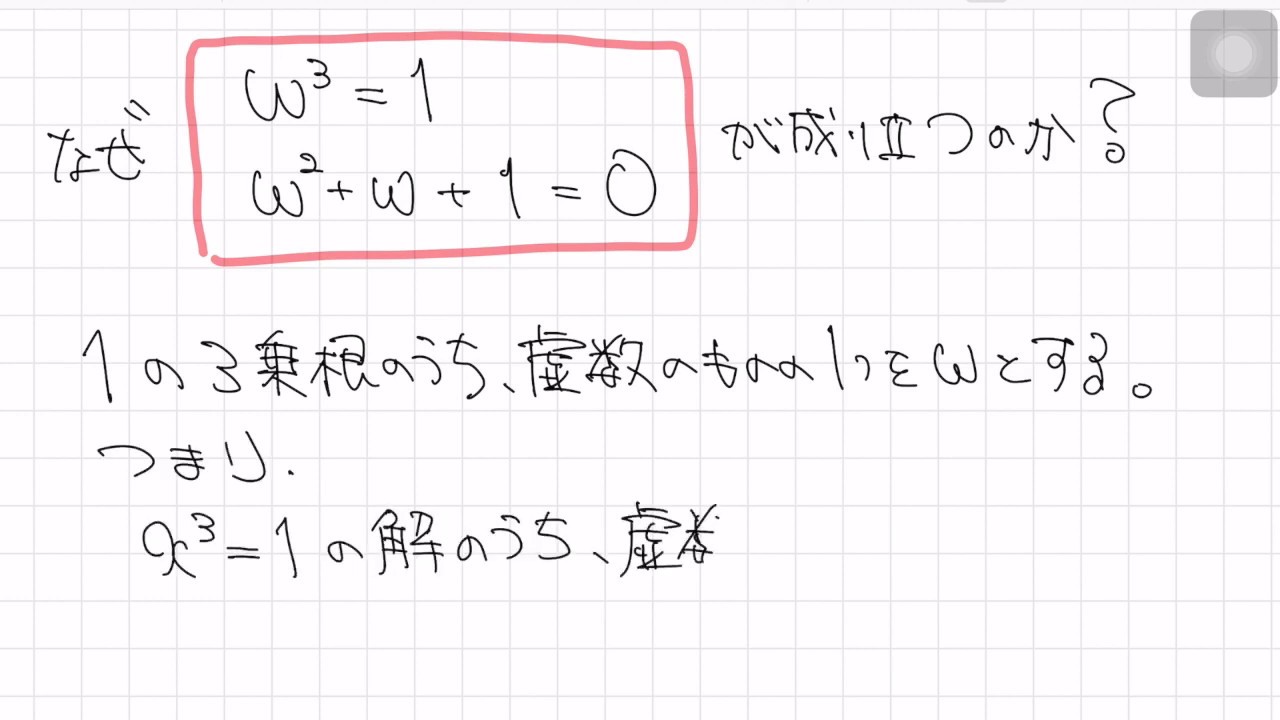 なぜ
ω³ = 1
ω² + ω + 1 = 0
が成り立つのか?
1の3乗根のうち、虚数のものの1つをωとする。
つまり.
x³ = 1の解のうち、虚